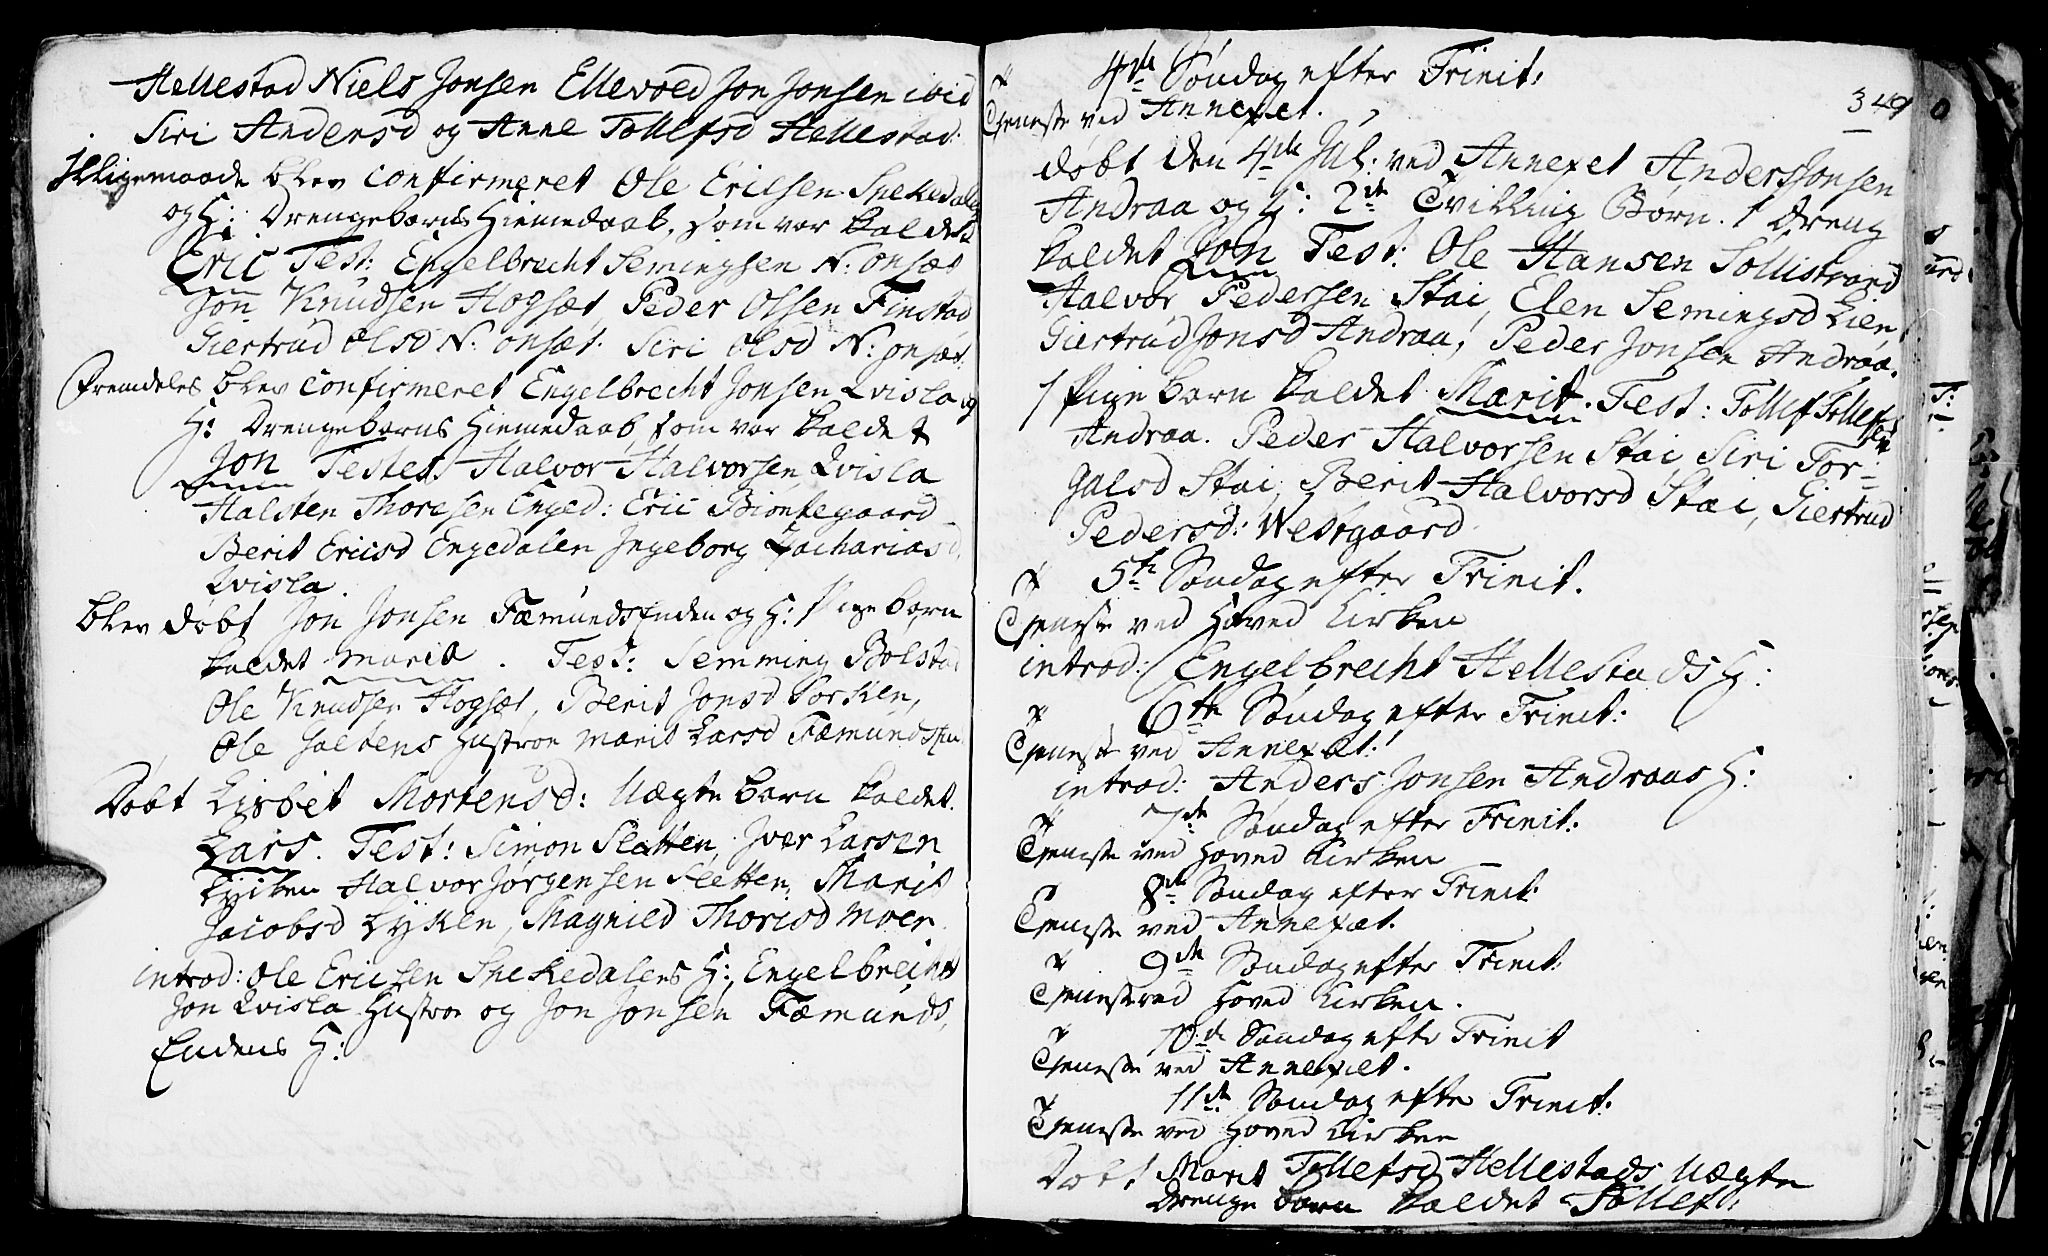 Hellestad Niels Jonsen Ellevold Jon Jonsen ibid
Siri Andersd og Anne Tollefsd Hellestad.
Jlligemaade blev confirmeret Ole Ericsen Snekedalen
og H: Drengebarns Hiemedaab, som var kaldet
Eric Test: Engelbrecht Semingsen N: onset
Jon Knudsen Hogset, Peder Olsen Finstad
Giertrud Olsd N: onset. Siri Olsd N: onset.
Fremdeles blev confirmeret Engelbrecht Jonsen Qvisla og
H: Drengebarns Hiemedaab som var kaldet
Jon Testes: Halvor Halvorsen Qvisla
Halsten Thoresen Enged: Eric Biontegaard
Berit Ericsd Engedalen Jngeborg Zachariasd.
Qvisla.
blev døbt Jon Jonsen Fæmundsenden og H: Pige barn
kaldet Marit. Test: Semming Bolstad
Ole Knudsen Hogset, Berit Jonsd Sorken,
Ole Saltens Hustroe Marit Larsd Fæmundsen
Døbt Lisbet Mortensd: Uægte barn kaldet
Lars. Test: Simon Sletten, Jver Larsen
Lyken Halvor Jørgensen Sletten, Marit
Jacobsd Lyken, Magnild Thorisd Moen.
introd: Ole Ericsen Snekedalens H:, Engelbrecht
Jon Qvisla Hustroe og Jon Jonsen Fæmunds,
Endens H:
4de Søndag efter Trinit:
349
Tieneste ved Annexet.
døbt den 4de Jul: ved Annexet Anders Jonsen
Andraa og H: 2de Tvilling Børn. 1 Dreng
kaldet Jon Test: Ole Hansen Sollistrand
Halvor Pedersen Stai, Elen Semingsd Lien
Giertrud Jonsd Andraa, Peder Jonsen Andraa.
1 Pige barn kaldet Marit. Test: Tollef Tollefsen
Andraa. Peder Halvorsen Stai Siri Tor-
galsd Stai, Berit Halvorsd Stai, Giertrud
Pedersd: Westgaard
5te Søndag efter Trinit.
Tieneste ved Hoved Kirken
introd: Engelbrecht Hellestads H:
6te Søndag efter Trinit:
Tieneste ved Annexet.
introd: Anders Jonsen Andraas H:
7de Søndag efter Trinit:
Tieneste ved Hoved Kirken
8de Søndag efter Trinit:
Tieneste ved Annexet.
9de Søndag efter Trinit:
Tieneste ved Hoved Kirken.
10de Søndag efter Trinit
Tieneste ved Annexet.
11te Søndag efter Trinit:
Tieneste ved Hoved Kirken
Døbt Marit Tollefsd Hellestads Uægte
Drenge barn kaldet Tollef